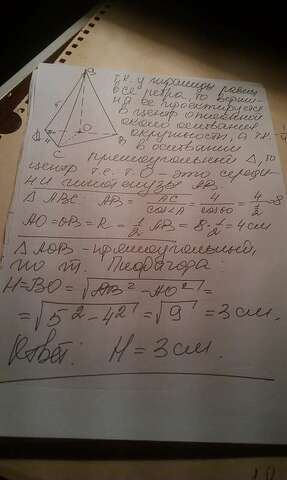 Т.к. у пирамиды равны
все ребра, то верши-
на ее проектируется
в центр описанной
около основания
окружности, а т.к.
в основании
прямоугольный Δ, то
центр т.е. т. О - это середи-
на гипотенузы АВ
Δ АВС: АВ = AC/cos∠A = 4/cos60 = 4/½ = 8
АО = ОВ = R = ½ АВ = 8·½ = 4 см
Δ АОВ - прямоугольный,
по т. Пифагора:
H = ВО = √АВ² - АО² =
= √5² - 4² = √9 = 3 см.
Ответ: H = 3 см.
В
5
А
4
О
С